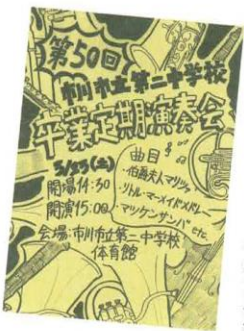 第50回
市川市立第二中学校
卒業定期演奏会
3/23(土)
開場14:30
開演15:00
曲目
・伯爵夫人マリツァ
・リトル・マーメイドメドレー
・マツケンサンバ etc
会場:市川市立第二中学校
体育館